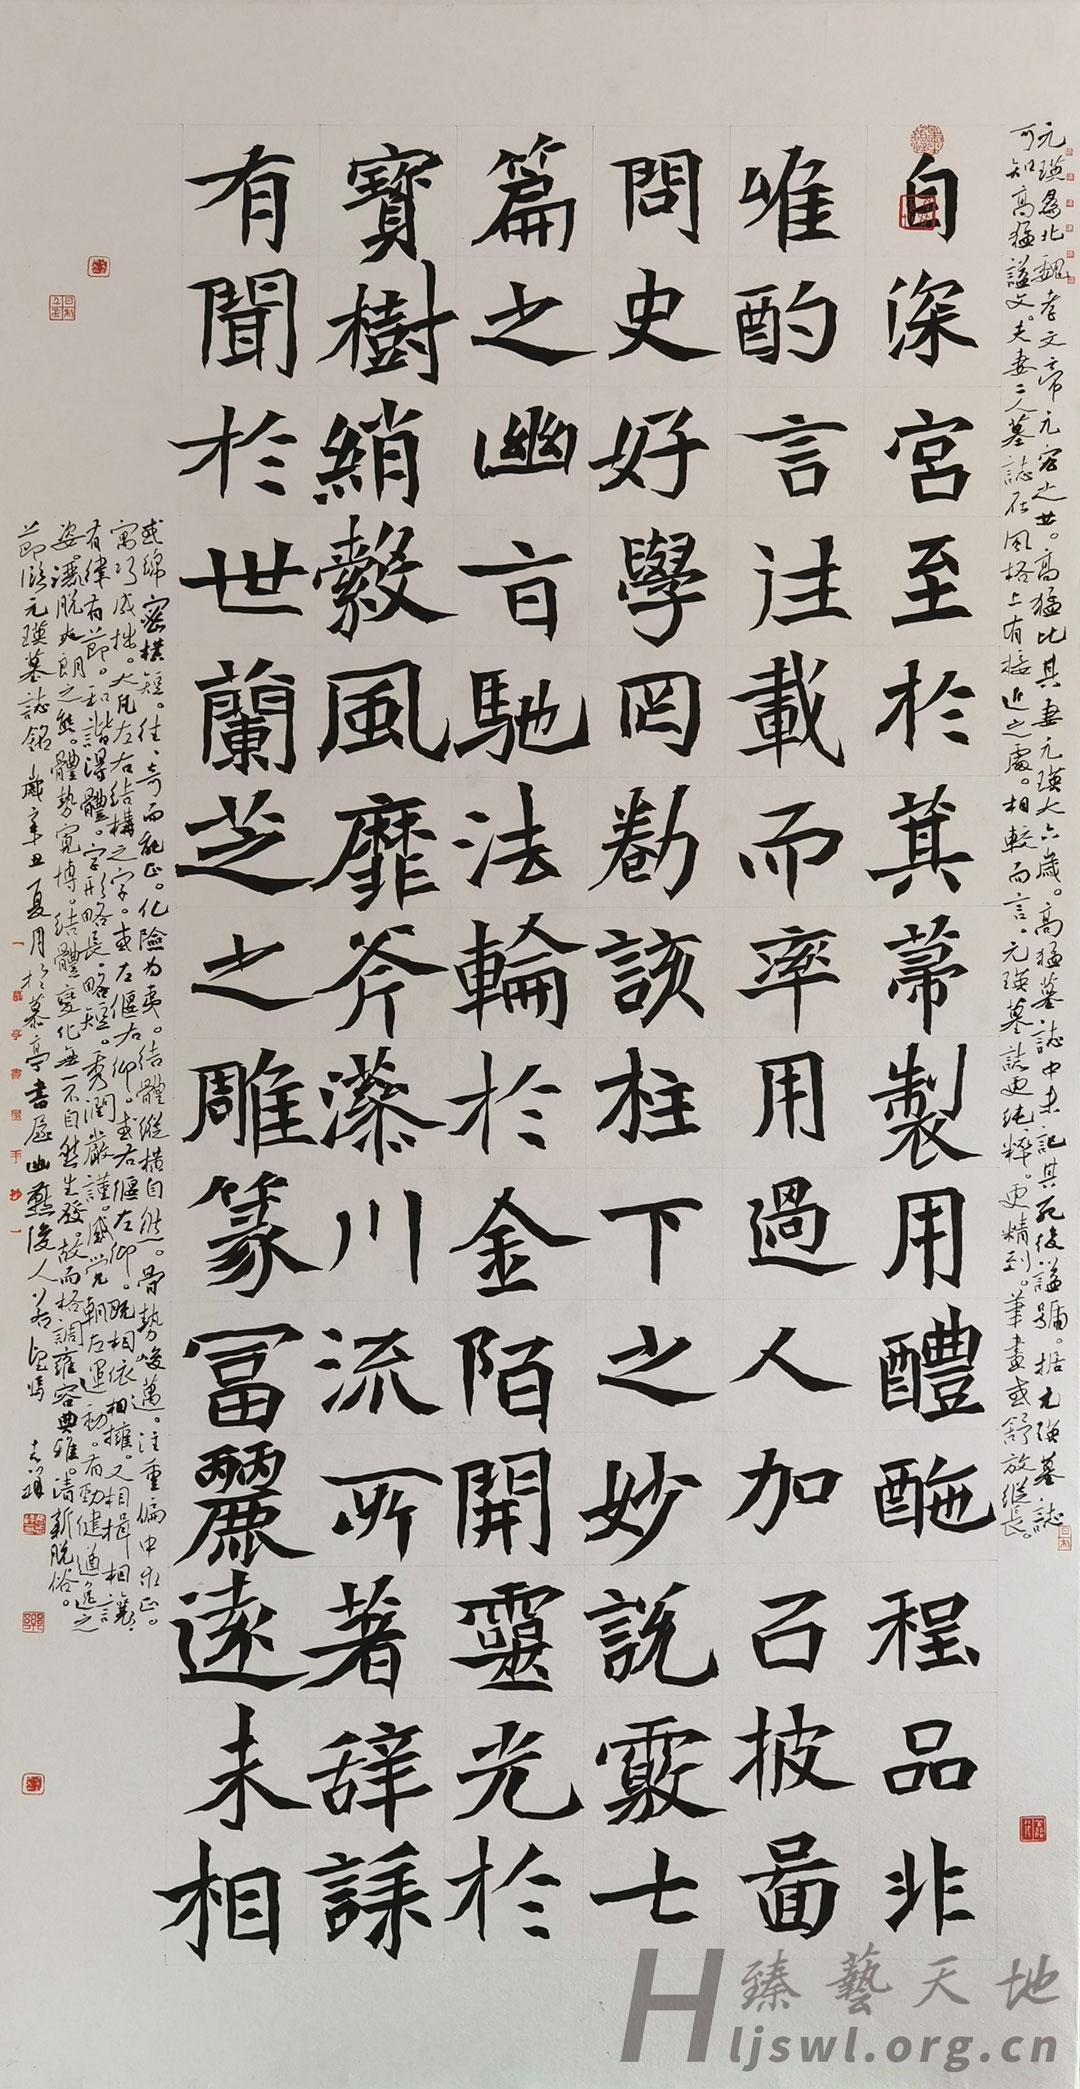 元瑛為北魏孝文帝元宏之女。高猛比其妻元瑛大六歲。高猛墓誌中未記其死後謚號。据元瑛墓誌
可知高猛謚文。夫妻二人墓誌在風格上有接近之處。相較而言。元瑛墓誌更純粹。更精到。筆畫或舒放縱長。
自深宮至於萁蒂製用醴酏程品非
唯酌言詿載而率用過人加召披啚
問史好學罔勌該柱下之妙說覈七
篇之幽旨馳法輪於金陌開靈光於
寶樹綃縠風靡斧藻川流所著辞誄
有聞於世蘭芝之雕篆富麗遠未相
或綿密橫短。往、奇而能正。化險為夷。結體縱橫自然。骨勢峻邁。注重偏中求正。
寓巧成拙。大凡左右結構之字。或左傾右仰。或右傾左仰。既相依相擁。又相揖相讓。
有律有節。和諧得體。字形略長、略短。秀潤嚴謹。感覺朝左運動。有勁健遒逸之
姿。瀟脫爽朗之態。體勢寬博。結體變化無一不自然生發。故而格調雍容典雅。清新脫俗。
節臨元瑛墓誌銘 歲辛丑夏月 於慕亭書屋 幽燕後人
臻藝天地
Hljswl.org.cn